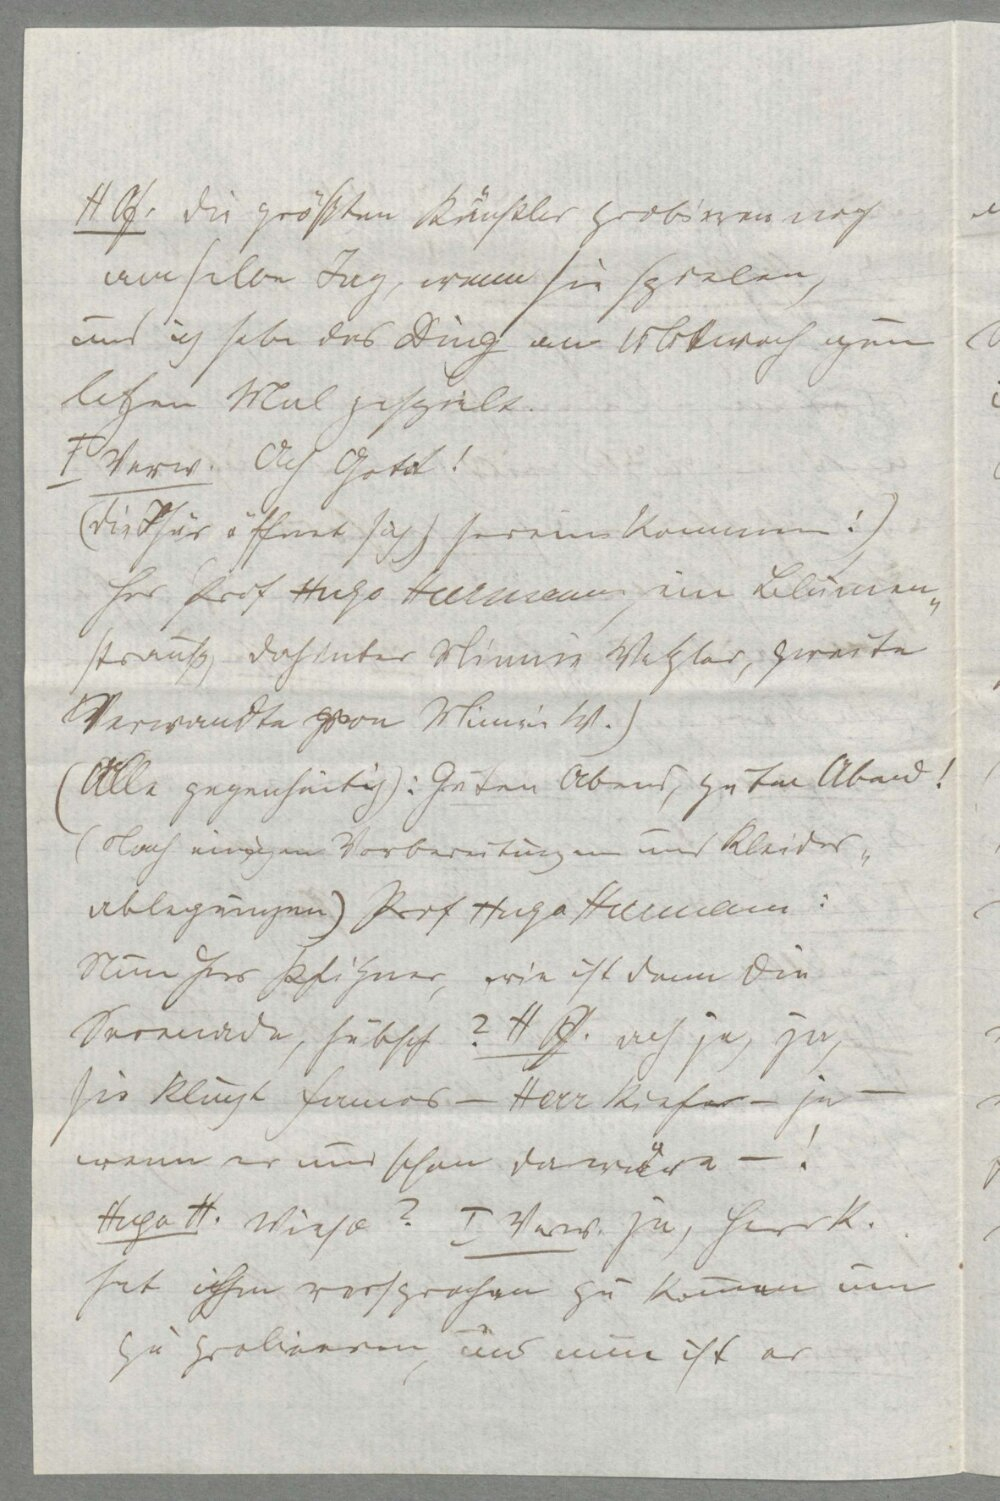 H Pf. die größten Künstler probieren noch
am selben Tag, wenn sie spielen,
und ich habe das Ding am Mittwoch zum
letzen Mal gespielt.
I Verw. Ach Gott!
(die Thür öffnet sich) herein kommen:)
Herr Prof Hugo Heermann, im Blumen„
strauß, dahinter Minnie Wetzlar, zweite
Verwandte von Minnie W.)
(Alle gegenseitig): Guten Abend, guten Abend!
(Nach einigen Vorbereitungen und Kleider„
ablegungen) Prof Hugo Heermann:
Nun Herr Pfitzner, wie ist denn die
Serenade, hübsch? H Pf. ach ja, ja,
sie klingt famos – Herr Kiefer – ja –
wenn er nur schon da wäre – !
Hugo H. Wieso? I Verw. ja, Herr K.
hat ihm versprochen zu kommen um
zu probieren, und nun ist er